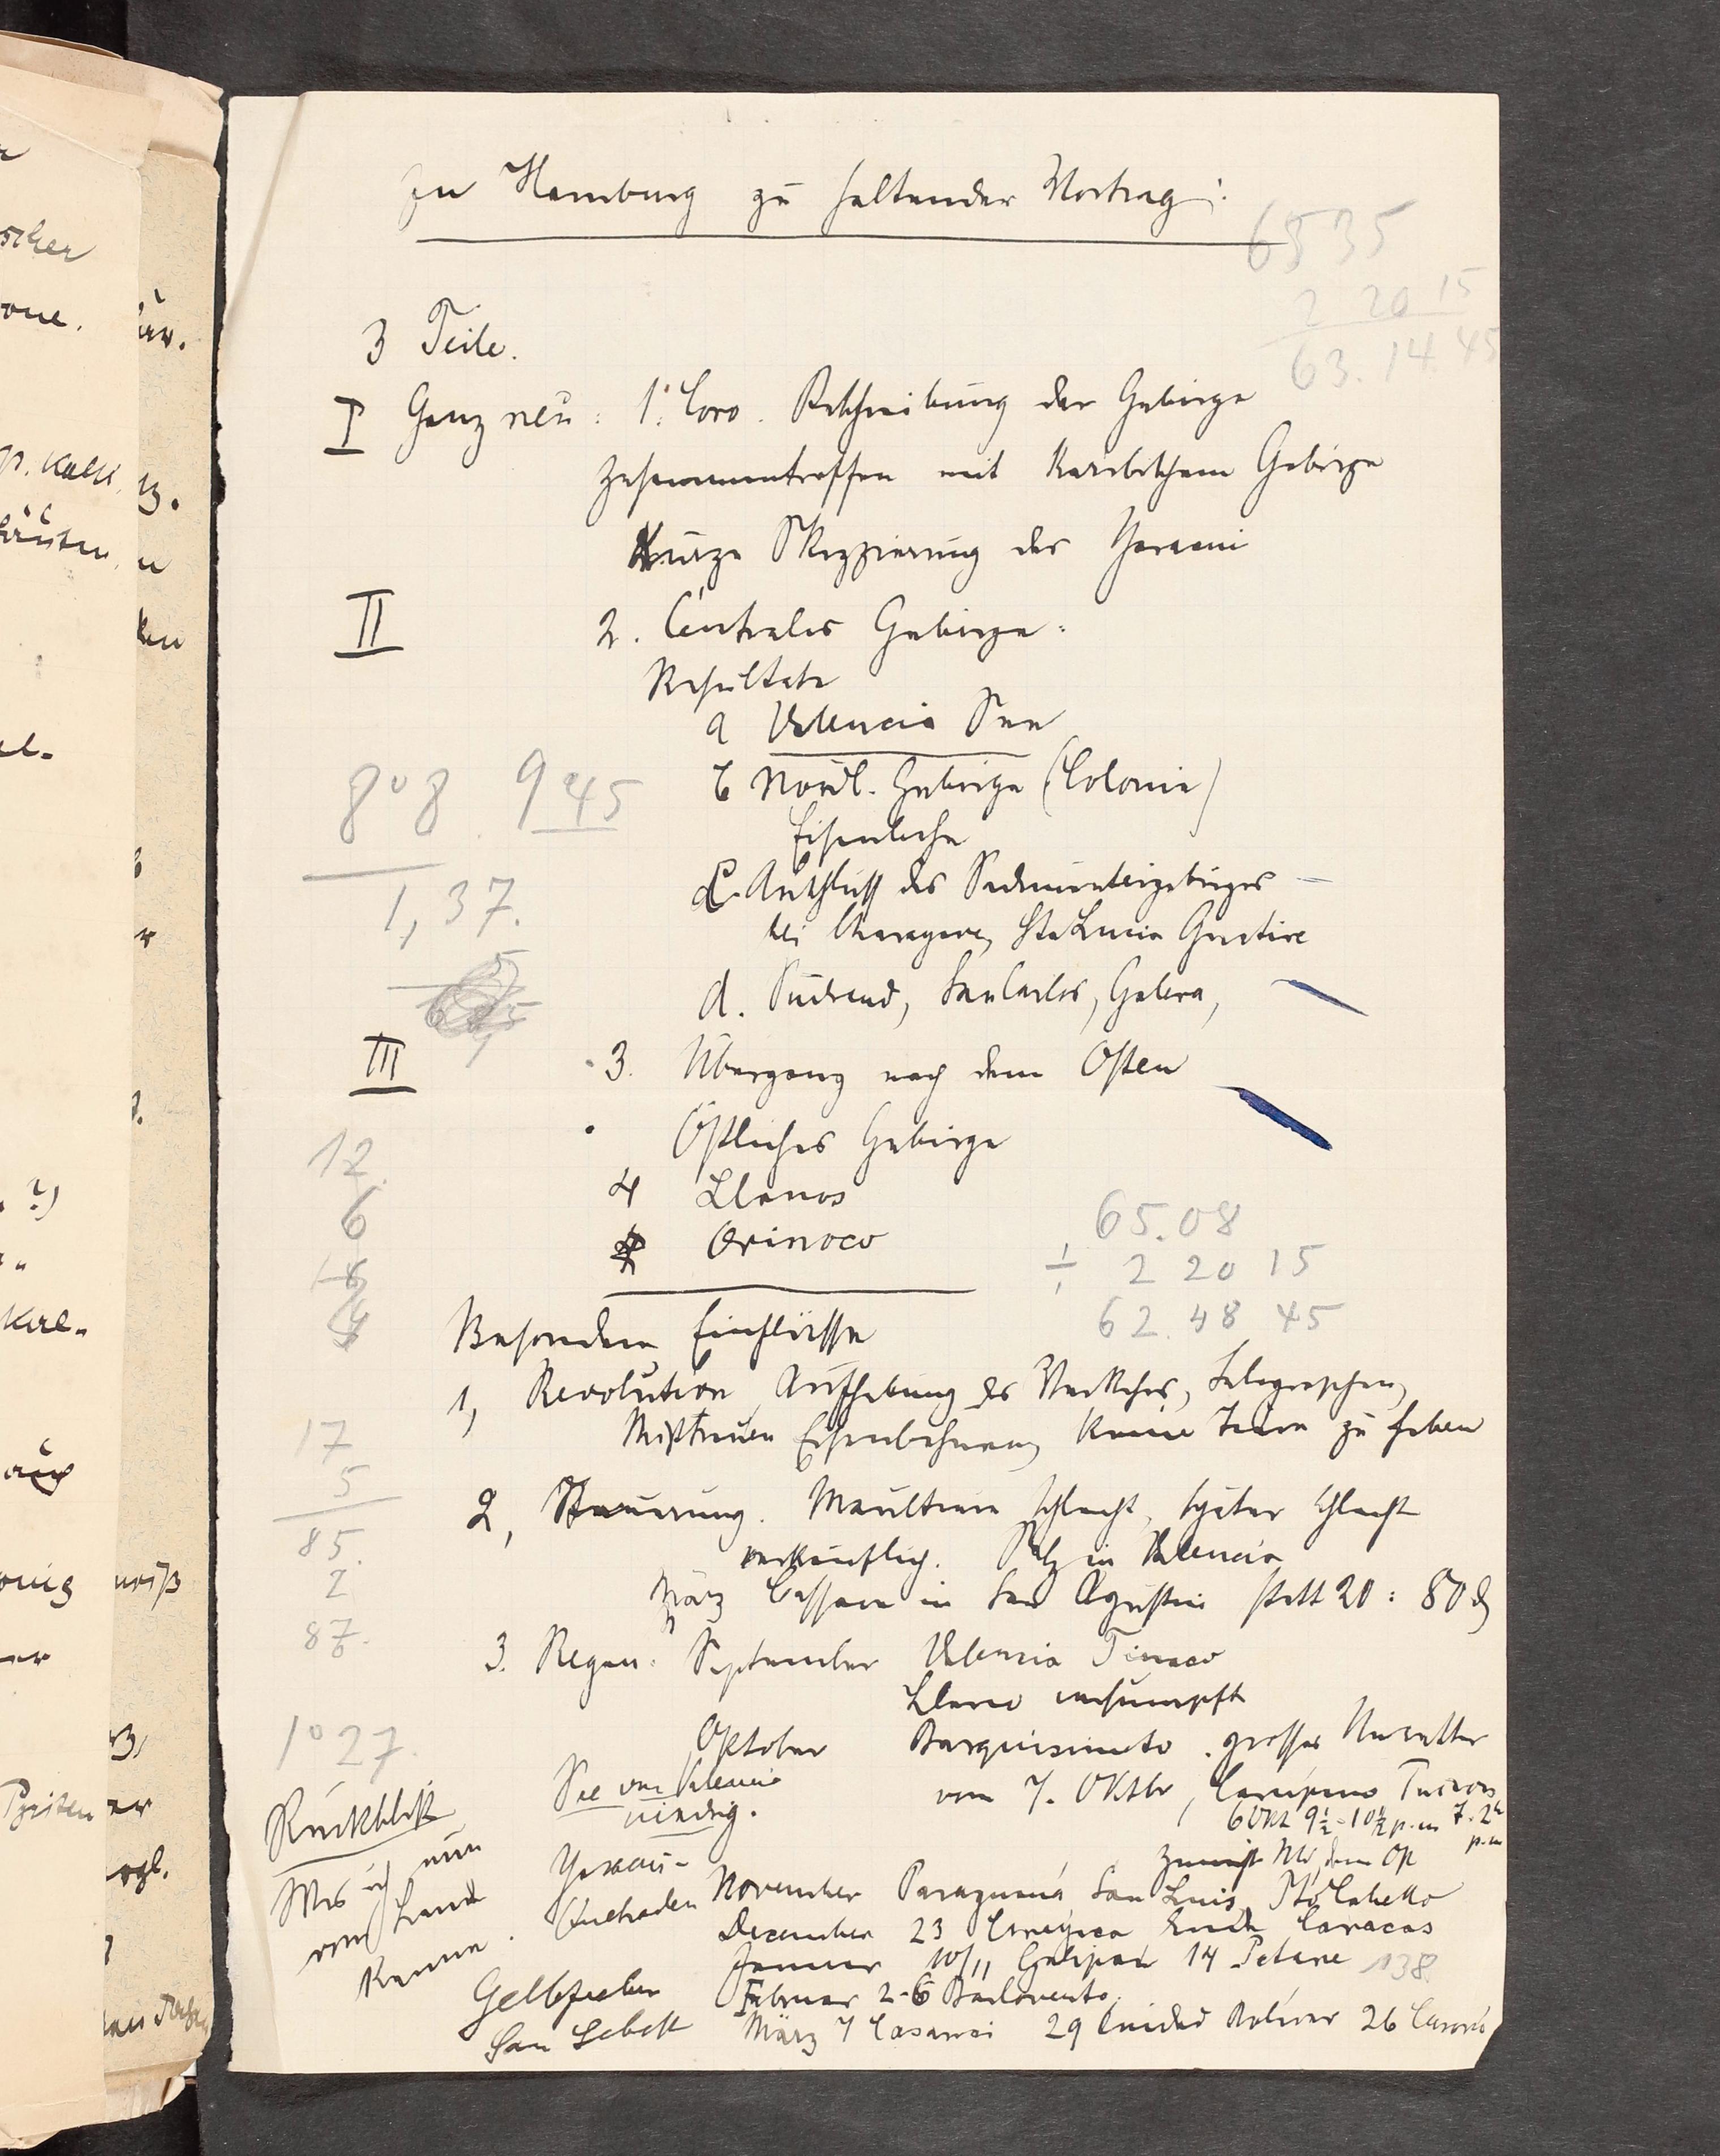 In Hamburg zu haltender Vortrag:
6535
2 20 15
63. 14. 45
3 Teile.
I Ganz neu: 1. Coro. Beschreibung der Gebirge
Zusammentreffen mit Karibischem Gebirge
Kurze Skizzierung des Yaracui
II 2. Centrales Gebirge:
Resultate
a Valencia See
b Nördl. Gebirge (Colonie)
808 945
Eisenbahn
c. Anschluss des Sedimentärgebirges
1,37.
bei Charayave, Sta Lucia Guatire
d. Südrand, San Carlos, Galera,
III 3. Übergang nach dem Osten
Östliches Gebirge
12
4 Llanos
6
65.08
Orinoco
÷ 2 20 15
62. 48 45
Besondere Einflüsse
1, Revolution Aufhebung des Verkehrs, Telegraphen,
Mißtrauen Eisenbahnen, keine Tiere zu haben
17
5
2, Teuerung. Maultiere schlecht, später schlecht
85.
verkäuflich. Salz in Valencia
2
März Cassave in San Agustin statt 20 : 80
87.
3. Regen: September Valencia Tinaco
Llano versumpft
1° 27.
Oktober Barquisimeto. grosses Unwetter
See von Valencia
vom 7. Oktbr, Carúpano
niedrig.
6 Okt 9½-10½ p.m 7. 2h
p.m
Rückblick
Was ich nun
vom Lande
kenne.
Yaracui-
Quebraden
November Paraguaná San Luis, Pto Cabello
December 23 Ende Caracas
Januar 10/11 Galipan 14 Petare 138
Gelbfieber
Februar 2-6 Barlovento.
San Sebast
März 7 Casanai 29 Ciudad Bolívar 26 Caroni